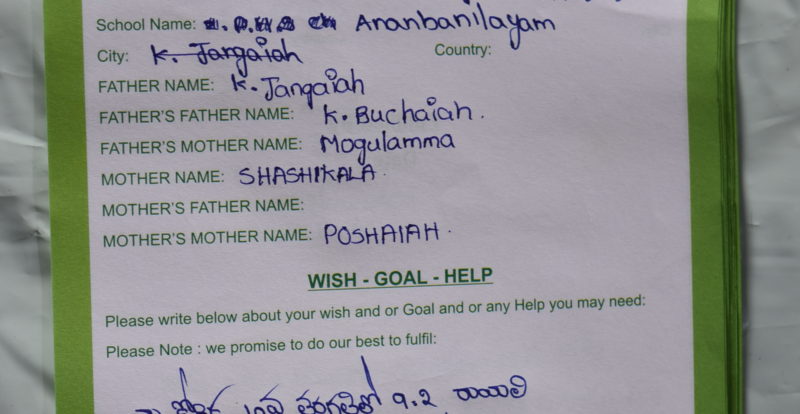 School Name: Ananbanilayam
City: K. Jangaiah Country:
FATHER NAME: K. Jangaiah
FATHER'S FATHER NAME: K. Buchaiah.
FATHER'S MOTHER NAME: Mogulamma
MOTHER NAME: SHASHIKALA
MOTHER'S FATHER NAME:
MOTHER'S MOTHER NAME: POSHAIAH.
WISH - GOAL - HELP
Please write below about your wish and or Goal and or any Help you may need:
Please Note : we promise to do our best to fulfil:
9.2